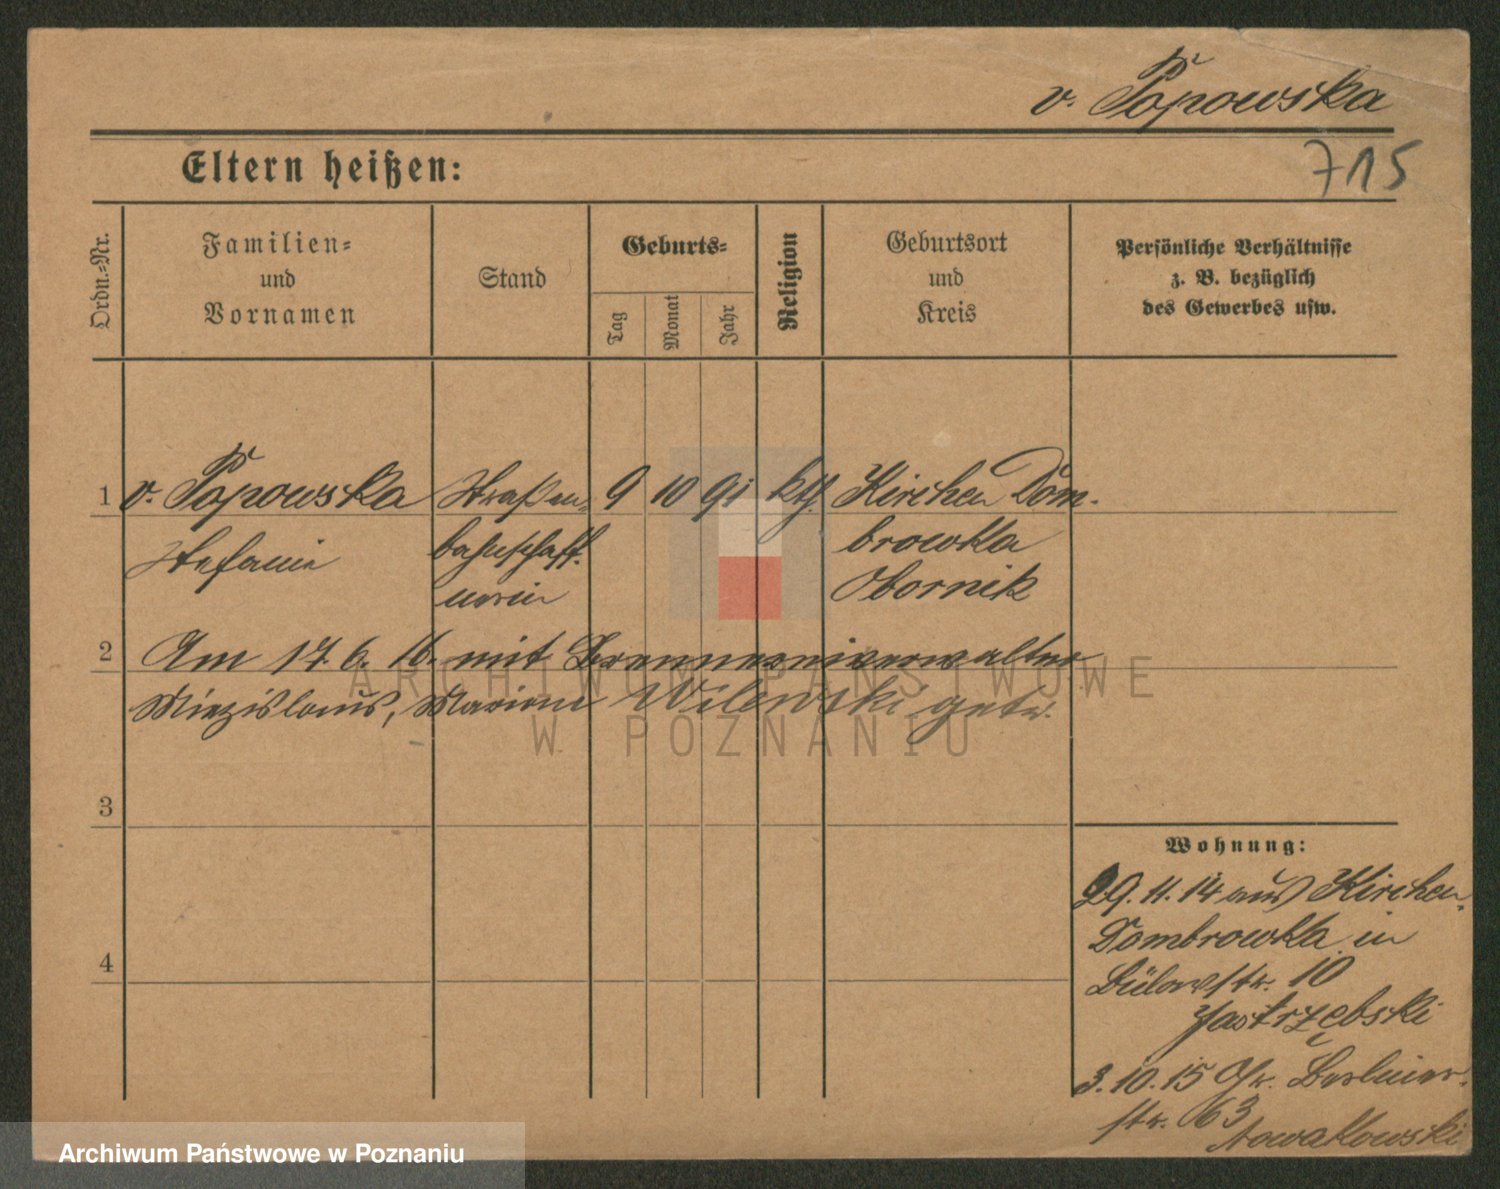 v. Popowska
Eltern heißen:
715
Ordn.=Nr.
Familien=
und
Vornamen
Stand
Geburts=
Tag
Monat
Jahr
Religion
Geburtsort
und
Kreis
Persönliche Verhältnisse
z. B. bezüglich
des Gewerbes usw.
1 v. Popowska Straßen= 9 10 91 kth. Kirchen Dom-
Stefanie bahnschaff- browka
nerin Obornik
2 Am 17. 6. 16. mit Brennereiverwalter
Miezislaus, Marion Wilewski getr.
3
4
Wohnung:
29. 11. 14 aus Kirchen-
Dombrowka in
Bülowstr. 10
Jastrzębski
3. 10. 15 Gr. Berliner-
str. 63
Nowakowski
ARCHIWUM PAŃSTWOWE
W POZNANIU
Archiwum Państwowe w Poznaniu